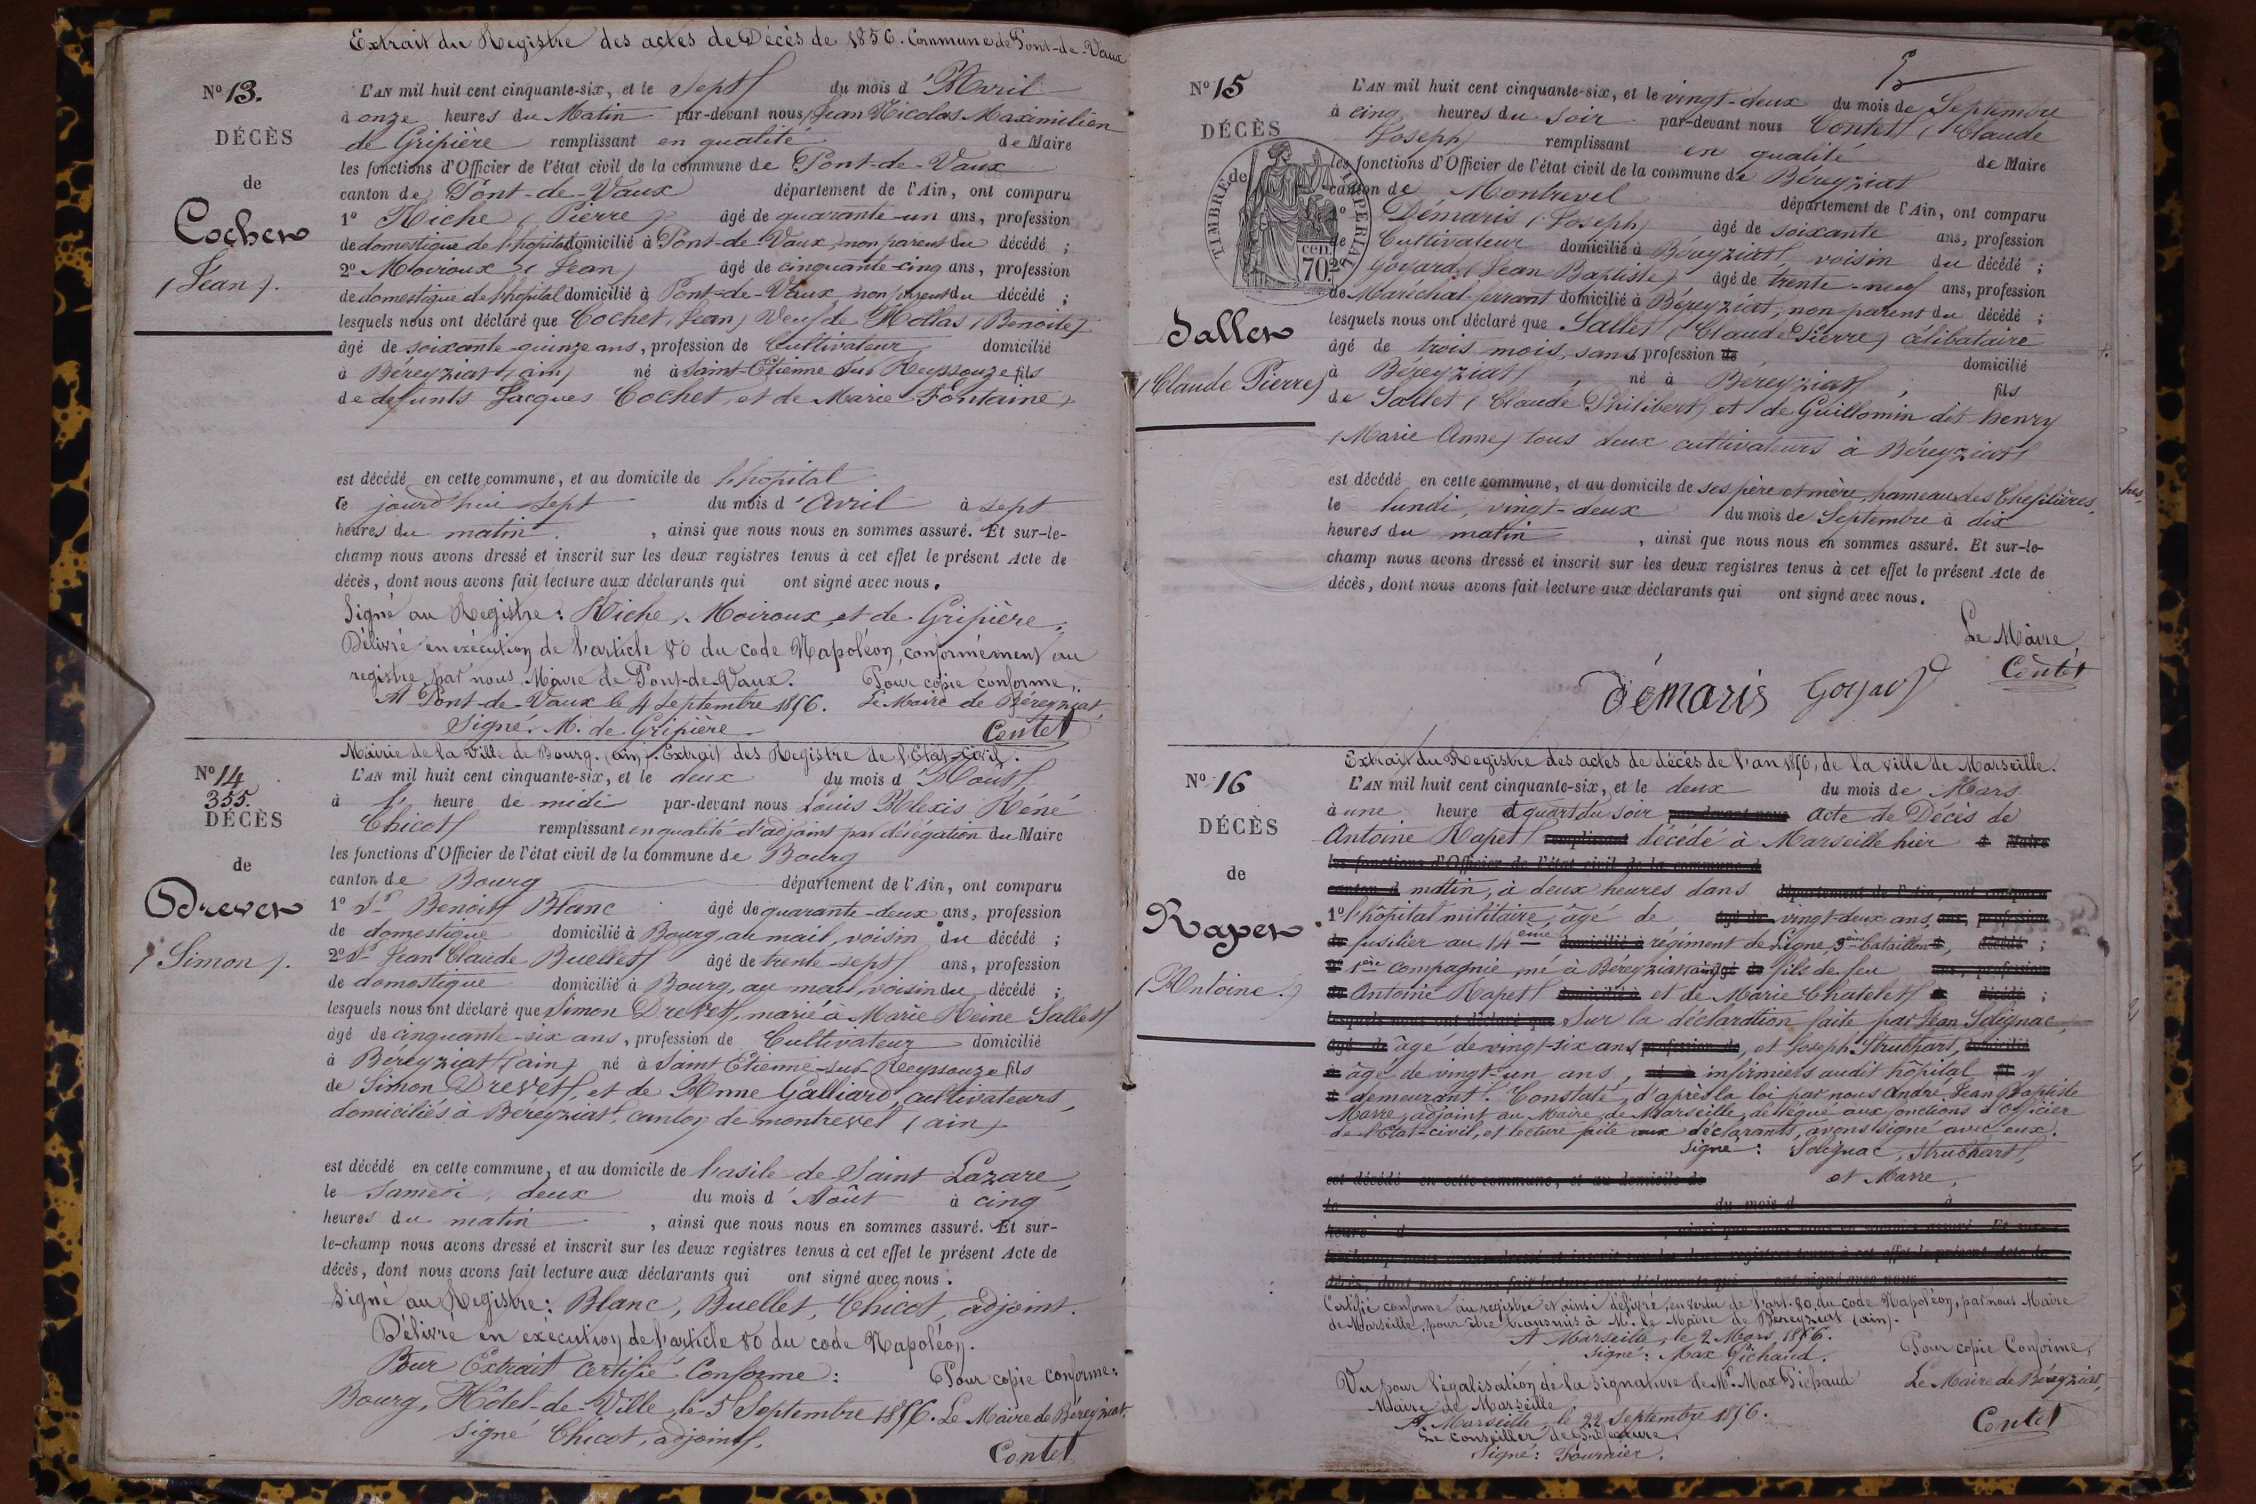 Extrait du Registre des actes de Décès de 1856. Commune de Pont-de-Vaux
N° 13.
DÉCÈS
de
Cochet
(Jean).
L'AN mil huit cent cinquante-six, et le sept du mois d'Avril
à onze heures du Matin par-devant nous Jean Nicolas Maximilien
de Gripière remplissant en qualité de Maire
les fonctions d'Officier de l'état civil de la commune de Pont-de-Vaux
canton de Pont-de-Vaux département de l'Ain, ont comparu
1° Riche (Pierre) âgé de quarante-un ans, profession
de domestique de l'hopital domicilié à Pont-de-Vaux, non parent du décédé ;
2° Moiroux (Jean) âgé de cinquante-cinq ans, profession
de domestique de l'hopital domicilié à Pont-de-Vaux, non parent du décédé ;
lesquels nous ont déclaré que Cochet (Jean) Veuf de (Benoite)
âgé de soixante-quinze ans, profession de Cultivateur domicilié
à Béreyziat (ain) né à Saint-Etienne sur Reyssouze fils
de defunts Jacques Cochet et de Marie Fontaine
est décédé en cette commune, et au domicile de l'hopital
le jourd'hui sept du mois d'Avril à sept
heures du matin , ainsi que nous nous en sommes assuré. Et sur-le-
champ nous avons dressé et inscrit sur les deux registres tenus à cet effet le présent Acte de
décès, dont nous avons fait lecture aux déclarants qui ont signé avec nous.
Signé au Registre : Riche, Moiroux, et de Gripière.
Délivré en exécution de l'article 80 du code Napoléon, conformément au
registre, par nous Maire de Pont-de-Vaux. Pour copie conforme,
A Pont-de-Vaux le 4 Septembre 1856. Le Maire de Béreyziat,
Signé, M. de Gripière Contet
Mairie de la Ville de Bourg. (ain). Extrait des Registre de l'Etat-Civil.
N° 14
355.
DÉCÈS
de
Drevet
(Simon).
L'AN mil huit cent cinquante-six, et le deux du mois d'Août
à l' heure de midi par-devant nous Louis Alexis Réné
Chicot remplissant en qualité d'adjoint par délégation du Maire
les fonctions d'Officier de l'état civil de la commune de Bourg
canton de Bourg département de l'Ain, ont comparu
1° Sr Benoit Blanc âgé de quarante-deux ans, profession
de domestique domicilié à Bourg, au mail, voisin du décédé ;
2° Sr Jean Claude Buellet âgé de trente-sept ans, profession
de domestique domicilié à Bourg, au mail, voisin du décédé ;
lesquels nous ont déclaré que Simon Drevet, marié à Marie Reine Sallet
âgé de cinquante-six ans, profession de Cultivateur domicilié
à Béreyziat (ain) né à Saint Etienne-sur-Reyssouze fils
de Simon Drevet, et de Anne Galliard, cultivateurs,
domiciliés à Bereyziat, canton de montrevel (ain)
est décédé en cette commune, et au domicile de l'asile de Saint Lazare,
le Samedi, deux du mois d'Août à cinq
heures du matin , ainsi que nous nous en sommes assuré. Et sur-
le-champ nous avons dressé et inscrit sur les deux registres tenus à cet effet le présent Acte de
décès, dont nous avons fait lecture aux déclarants qui ont signé avec nous.
Signé au Registre : Blanc, Buellet, Chicot, adjoint.
Délivré en exécution de l'article 80 du code Napoléon.
Pour Extrait Certifié Conforme : Pour copie conforme :
Bourg, Hôtel-de-Ville, le 5 Septembre 1856. Le Maire de Béreyziat,
Signé Chicot, adjoint. Contet
N° 15
DÉCÈS
de
TIMBRE IMPERIAL
70 cen
Sallet
(Claude Pierre)
L'AN mil huit cent cinquante-six, et le vingt-deux du mois de Septembre
à cinq heures du soir par-devant nous Contet (Claude
Joseph) remplissant en qualité de Maire
les fonctions d'Officier de l'état civil de la commune de Béreyziat
canton de Montrevel département de l'Ain, ont comparu
1° Démaris (Joseph) âgé de soixante ans, profession
de Cultivateur domicilié à Béreyziat, voisin du décédé ;
2° Goyard (Jean Baptiste) âgé de trente-neuf ans, profession
de Maréchal-ferrant domicilié à Béreyziat, non-parent du décédé ;
lesquels nous ont déclaré que Sallet (Claude Pierre) célibataire
âgé de trois mois, sans profession de domicilié
à Béreyziat né à Béreyziat, fils
de Sallet (Claude Philibert) et de Guillomin dit henry
(Marie Anne) tous deux cultivateurs à Béreyziat
est décédé en cette commune, et au domicile de ses père et mère, hameau des
le lundi, vingt-deux du mois de Septembre à dix
heures du matin , ainsi que nous nous en sommes assuré. Et sur-le-
champ nous avons dressé et inscrit sur les deux registres tenus à cet effet le présent Acte de
décès, dont nous avons fait lecture aux déclarants qui ont signé avec nous.
Le Maire,
Contet
démaris Goyard
Extrait du Registre des actes de décès de l'an 1856, de la ville de Marseille.
N° 16
DÉCÈS
de
Rapet
(Antoine.)
L'AN mil huit cent cinquante-six, et le deux du mois de Mars
à une heure quart du soir par-devant nous acte de Décès de
Antoine Rapet remplissant décédé à Marseille hier Maire
les fonctions d'Officier de l'état civil de la commune d
canton d matin, à deux heures dans département de l'Ain, ont comparu
1° l'hôpital militaire, âgé de âgé de vingt-deux ans, ans, profession
de fusilier au 14ème domicilié à régiment de Ligne, 3ème bataillon, décédé ;
2° 1ère compagnie, né à Béreyziat (ain) âgé de fils de feu ans, profession
de Antoine Rapet domicilié à et de Marie Chatelet décédé ;
lesquels nous ont déclaré que Sur la déclaration faite par Jean Solignac,
âgé de âgé de vingt-six ans profession de, et Joseph Struthart, domicilié
à âgé de vingt-un ans, né à infirmiers audit hôpital y
demeurant. Constaté, d'après la loi par nous André, Jean Baptiste
Marre, adjoint au Maire de Marseille, délégué aux fonctions d'officier
de l'Etat-civil, et lecture faite aux déclarants, avons signé avec eux.
Signé : Solignac, Struthart,
est décédé en cette commune, et au domicile de et Marre,
le du mois d à
heure d , ainsi que nous nous en sommes assuré. Et sur-
le-champ nous avons dressé et inscrit sur les deux registres tenus à cet effet le présent Acte de
décès, dont nous avons fait lecture aux déclarants qui ont signé avec nous.
Certifié conforme au registre et ainsi délivré, en vertu de l'art. 80, du code Napoléon, par nous Maire
de Marseille, pour être transmis à M. le Maire de Béreyziat (ain).
A Marseille, le 2 Mars, 1856.
Signé : Max Pichaud. Pour copie Conforme,
Vu pour légalisation de la signature de Mr Max Pichaud Le Maire de Béreyziat,
Maire de Marseille
A Marseille, le 22 Septembre 1856. Contet
Le conseiller de Préfecture,
Signé : Fournier.